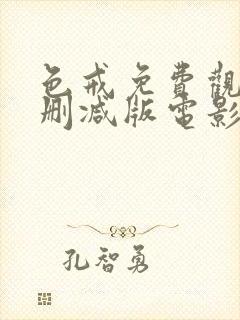 色戒免費觀
删減版電影
孔智勇